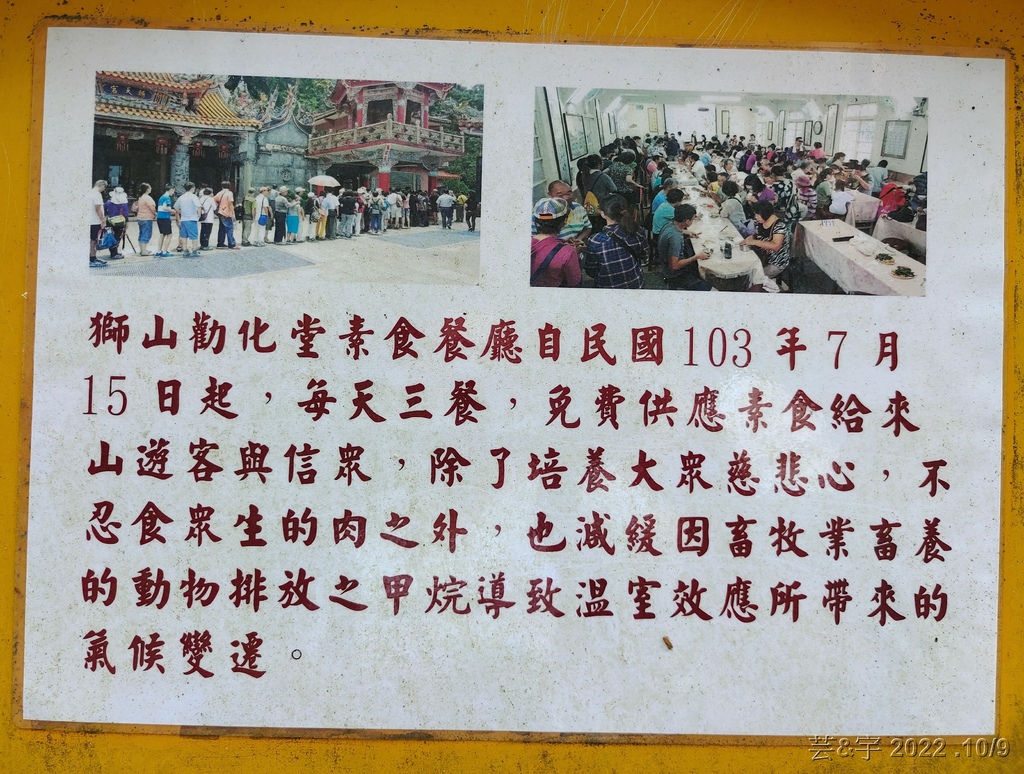 獅山勸化堂素食餐廳自民國103年7月
15日起，每天三餐，免費供應素食給來
山遊客與信眾，除了培養大眾慈悲心，不
忍食眾生的肉之外，也減緩因畜牧業畜養
的動物排放之甲烷導致溫室效應所帶來的
氣候變遷。
芸&宇 2022 .10/9